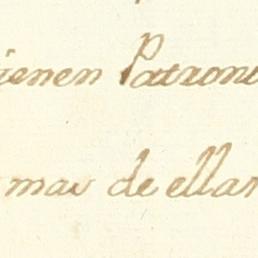 ienen Patron
mas de ellas